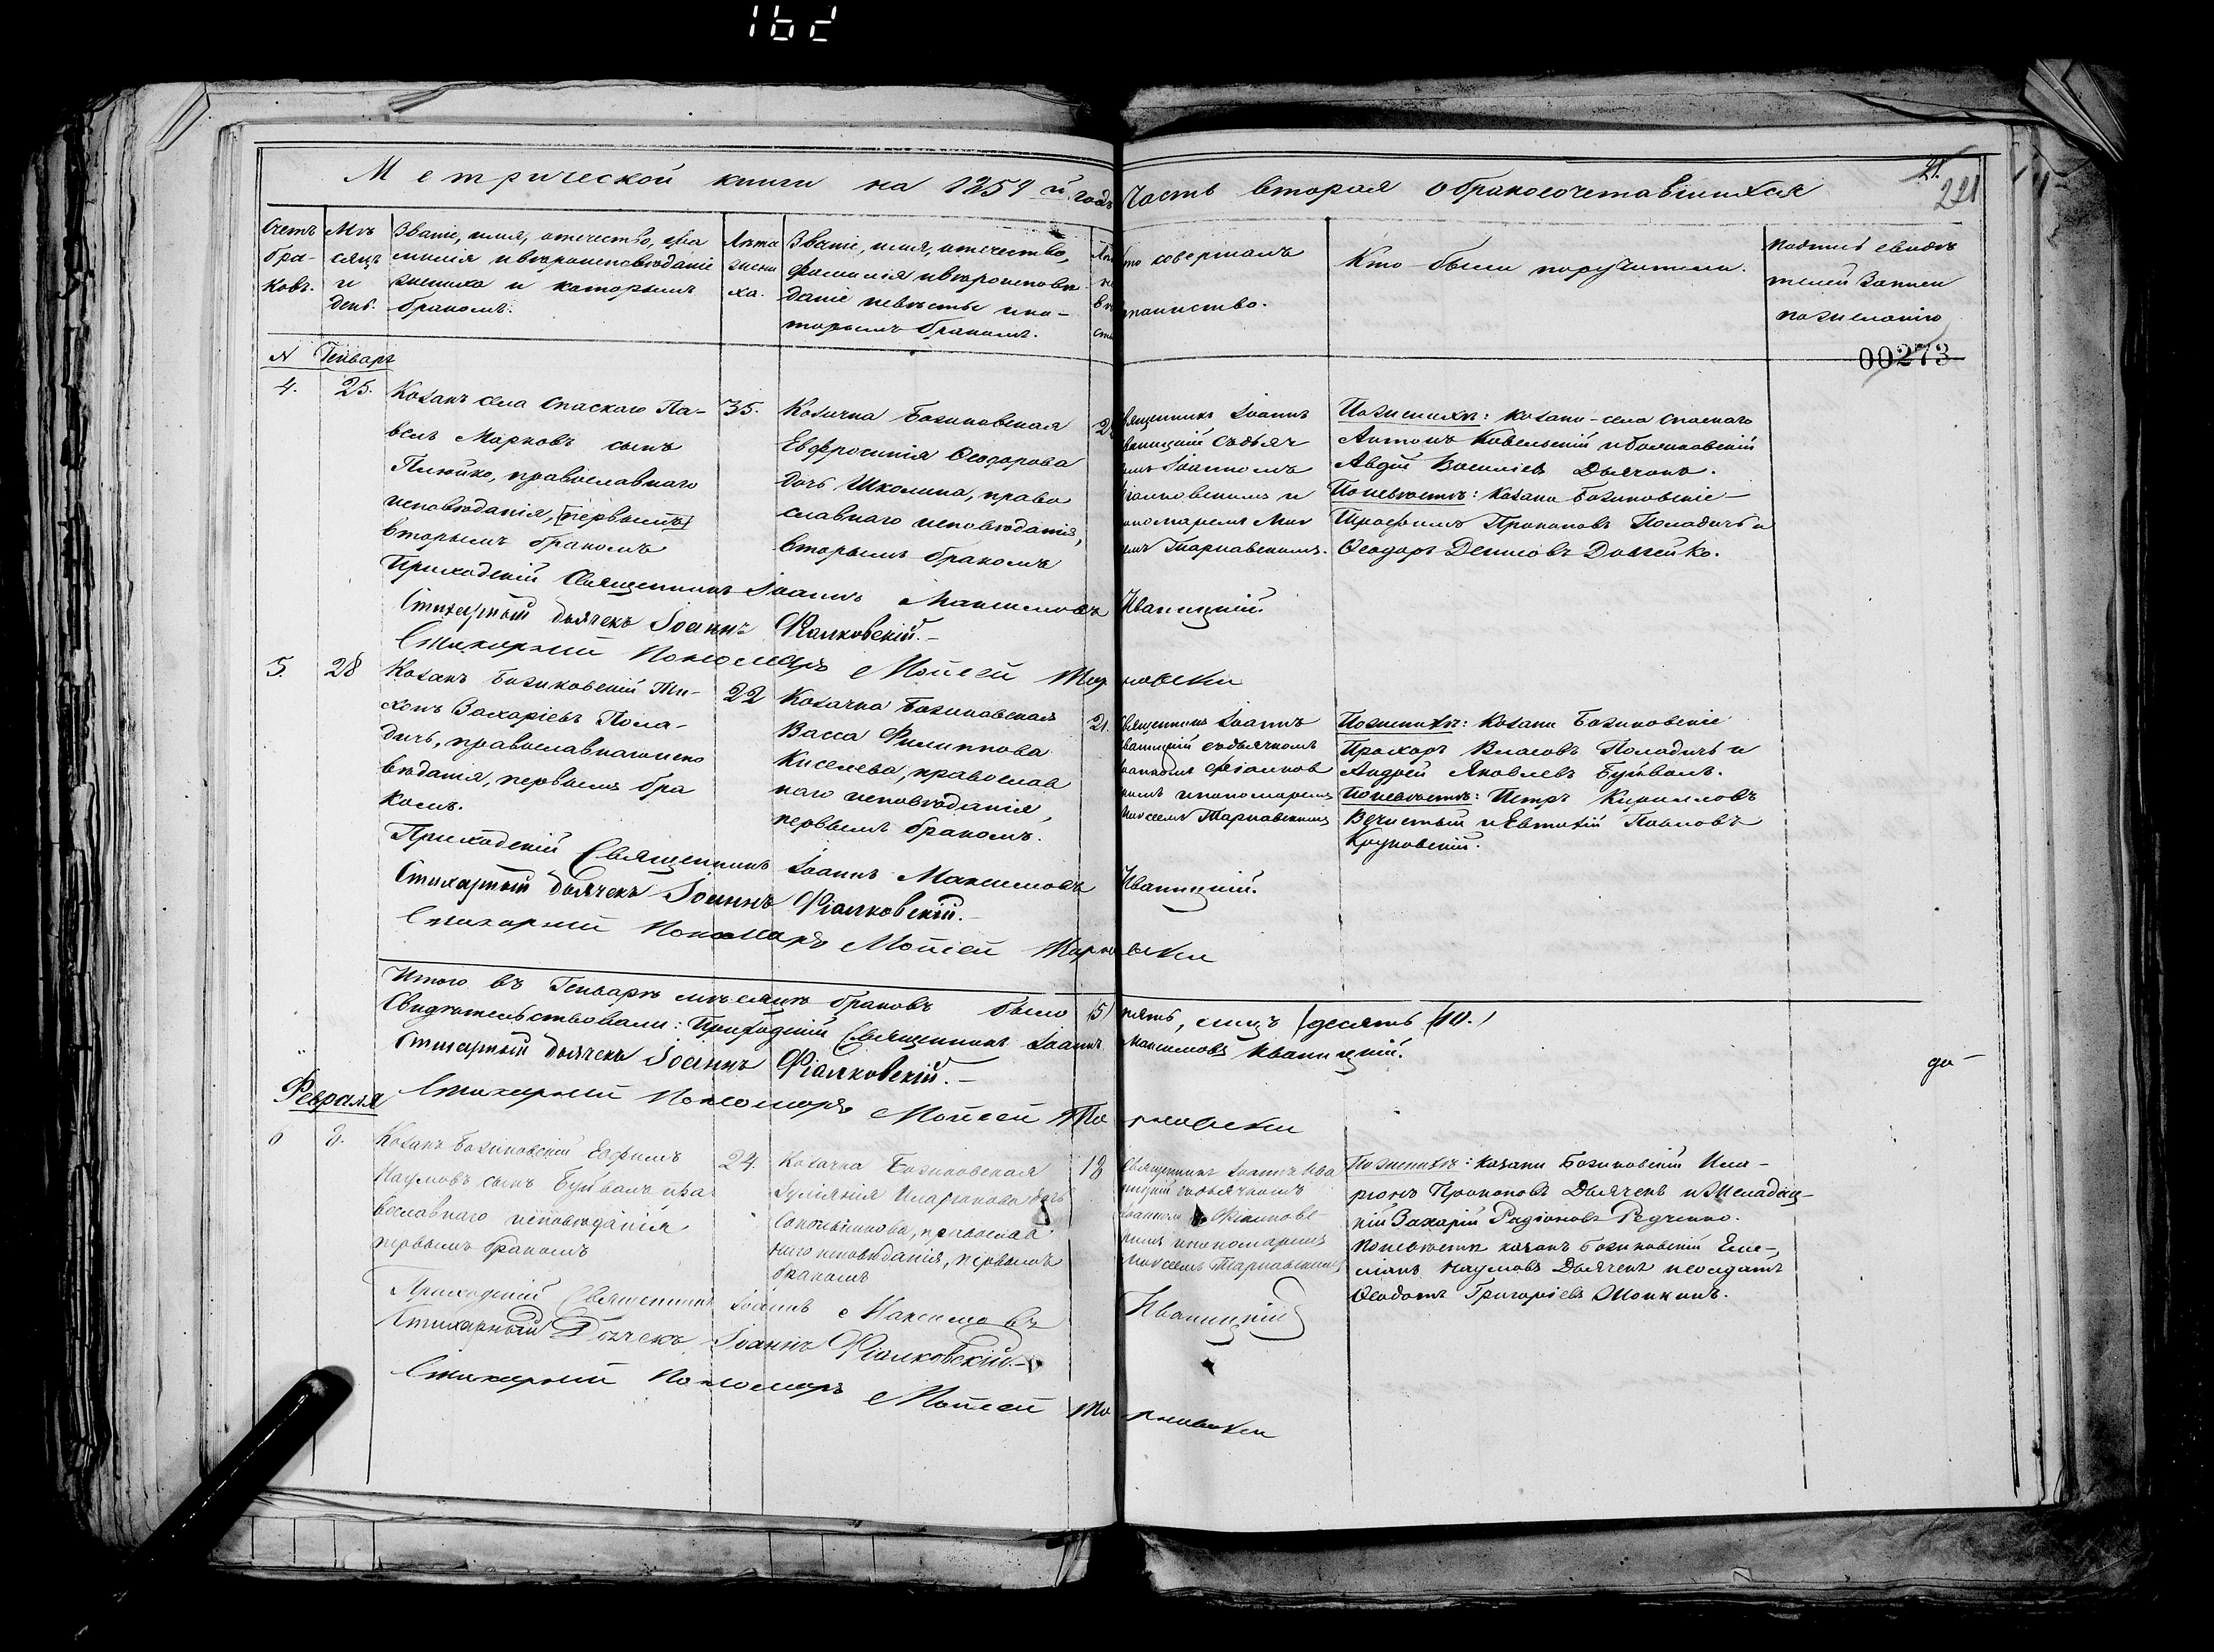 162
Метрической книги на 1859 й годъ Часть вторая о бракосочетавшихся
21.
221
Счетъ бра-ковъ.
Мѣсяцъ и день.
Званіе, имя, отчество, фа
милія и вѣроисповѣданіе
жениха и которымъ
бракомъ.
Лѣта
жени
ха.
Званіе, имя, отчество,
фамилія и вѣроисповѣ
даніе невѣсты и ко-
торымъ бракомъ.
то совершалъ
таинство.
Кто были поручители.
подпись свидѣ
телей записи
по желанію
00273
N Генварь
4. 25.
Козакъ села Спаского Па-
велъ Марковъ сынъ
православнаго
исповѣданія, (первымъ)
вторымъ бракомъ
35.
Козачка Божиковская
Евфросинія Ѳеодорова
дочь Школина, право
славнаго исповѣданія,
вторымъ бракомъ
вященникъ Іоаннъ
ваницкій съ дьяч
омъ Іоанномъ
іалковскимъ и
ономаремъ Мои
емъ Тарнавскимъ.
По женихѣ: козаки села Спаскаго
Антонъ Ковельскій и Божиковскій
Авдѣй Васильевъ Дьячокъ.
По невѣстѣ: козаки Божиковскіе
Трофимъ Прокоповъ Поладичъ и
Ѳеодоръ Денисовъ Должко.
Приходскій Священникъ Іоаннъ Максимовъ Иваницкій
Стихарный дьячекъ Іоаннъ Фіалковскій.-
Стихарный Пономарь Моисей Тарновски
5. 28
Козакъ Божиковскій Ти-
хонъ Захаріевъ Пола-
дичъ, православнаго испо
вѣданія, первымъ бра
комъ.
22
Козачка Божиковская
Васса Филиппова
Киселева, православ
наго исповѣданія,
первымъ бракомъ.
21.
вященникъ Іоаннъ
ваницкій съ дьячкомъ
оанномъ Фіалков
кимъ и пономаремъ
Моисеемъ Тарнавскимъ
По женихѣ: козаки Божиковскіе
Прохоръ Власовъ Поладичъ и
Андрей Яковлевъ Буйвалъ.
По невѣстѣ: Петръ Кирилловъ
и Евтихій Павловъ
Круковскій.
Приходскій Священникъ Іоаннъ Максимовъ Иваницкій.
Стихарный дьячекъ Іоаннъ Фіалковскій.-
Стихарный Пономарь Моисей Тарновски
Итого въ Генварѣ мѣсяцѣ браковъ было (5) пять, лицъ (десять (10.)
Свидѣтельствовали: Приходскій Священникъ Іоаннъ Максимовъ Иваницкій.
Стихарный дьячекъ Іоаннъ Фіалковскій.-
Стихарный Пономарь Моисей Тарновски
Февраля
6 3.
Козакъ Божиковскій Евфимъ
Наумовъ сынъ Буйвалъ пра
вославнаго исповѣданія
первымъ бракомъ
24.
Козачка Божиковская
Іуліянія Иларіонова дочь
Сокольникова, православ
наго исповѣданія, первымъ
бракомъ
18
Священникъ Іоаннъ Ива
ницкій съ дьячкомъ
Іоанномъ Фіалковс
кимъ и пономаремъ
Моисеемъ Тарнавскимъ
По женихѣ: козаки Божиковскій Ила-
ріонъ Прокоповъ Дьяченъ и
Захарій Радіоновъ Редченко.
По невѣстѣ козакъ Божиковскій Еме-
ліанъ Наумовъ Дьяченъ и солдатъ
Ѳеодотъ Григоріевъ
Приходскій Священникъ Іоаннъ Максимовъ Иваницкій
Стихарный Дьячекъ Іоаннъ Фіалковскій.-
Стихарный Пономарь Моисей Тарновски